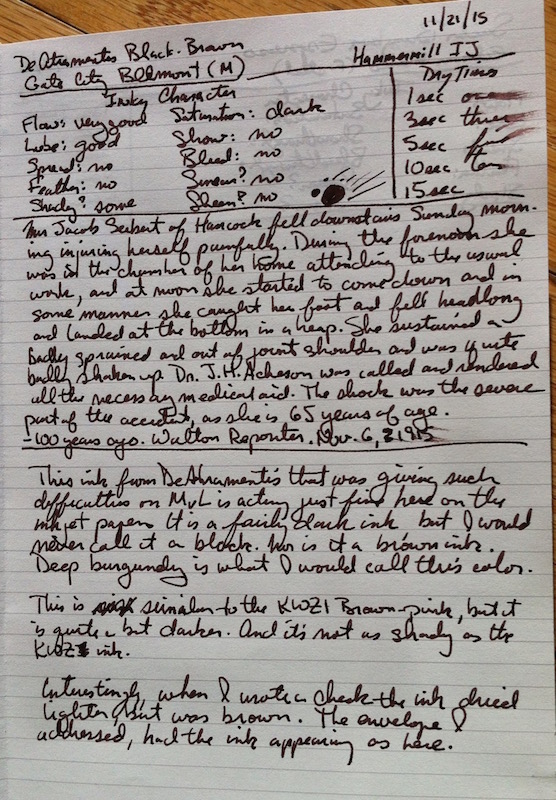 11/21/15
DeAtramentis Black-Brown
Gate City Belmont (M)
Hammermill IJ
Inky Character
Flow: very good
Lube: good
Spread: no
Feather: no
Shady? some
Saturation: dark
Show: no
Bleed: no
Smear? no
Sheen? no
Dry Times
1 sec one
3 sec three
5 sec five
10 sec ten
15 sec
Mrs Jacob Seibert of Hancock fell downstairs Sunday morn-
ing injuring herself painfully. During the forenoon she
was in the chamber of her home attending to the usual
work, and at noon she started to come down and in
some manner she caught her foot and fell headlong
and landed at the bottom in a heap. She sustained a
badly sprained and out of joint shoulder and was quite
badly shaken up. Dr. J.H. Acheson was called and rendered
all the necessary medical aid. The shock was the severe
part of the accident, as she is 65 years of age.
-100 years ago. Walton Reporter. Nov. 6, 1915
This ink from DeAtramentis that was giving such
difficulties on MvL is acting just fine here on the
inkjet paper. It is a fairly dark ink but I would
never call it a black. Nor is it a brown ink.
Deep burgundy is what I would call this color.
This is similar to the KWZI Brown-pink, but it
is quite a bit darker. And it's not as shady as the
KWZI ink.
Interestingly, when I wrote a check the ink dried
lighter, but was brown. The envelope I
addressed, had the ink appearing as here.